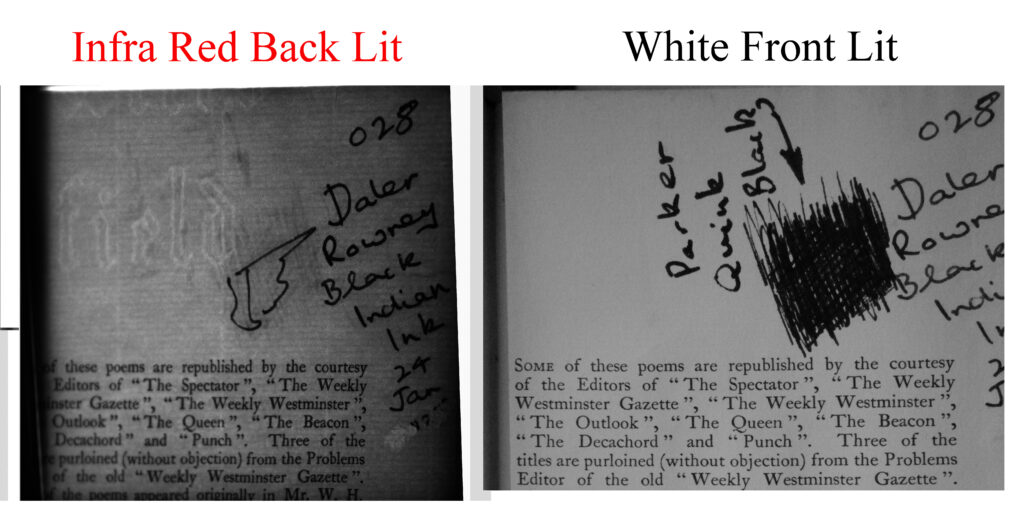 Infra Red Back Lit
White Front Lit
028
field
Daler
Rowney
Black
Indian
Ink
24
Jan
of these poems are republished by the courtesy
Editors of “The Spectator”, “The Weekly
inster Gazette”, “The Weekly Westminster”,
Outlook”, “The Queen”, “The Beacon”,
Decachord” and “Punch”. Three of the
purloined (without objection) from the Problems
of the old “Weekly Westminster Gazette”.
of the poems appeared originally in Mr. W. H.
Parker
Quink
Black
028
Daler
Rowne
Black
Indi
In
2
J
SOME of these poems are republished by the courtesy
of the Editors of “The Spectator”, “The Weekly
Westminster Gazette”, “The Weekly Westminster”,
“The Outlook”, “The Queen”, “The Beacon”,
“The Decachord” and “Punch”. Three of the
titles are purloined (without objection) from the Problems
Editor of the old “Weekly Westminster Gazette”.